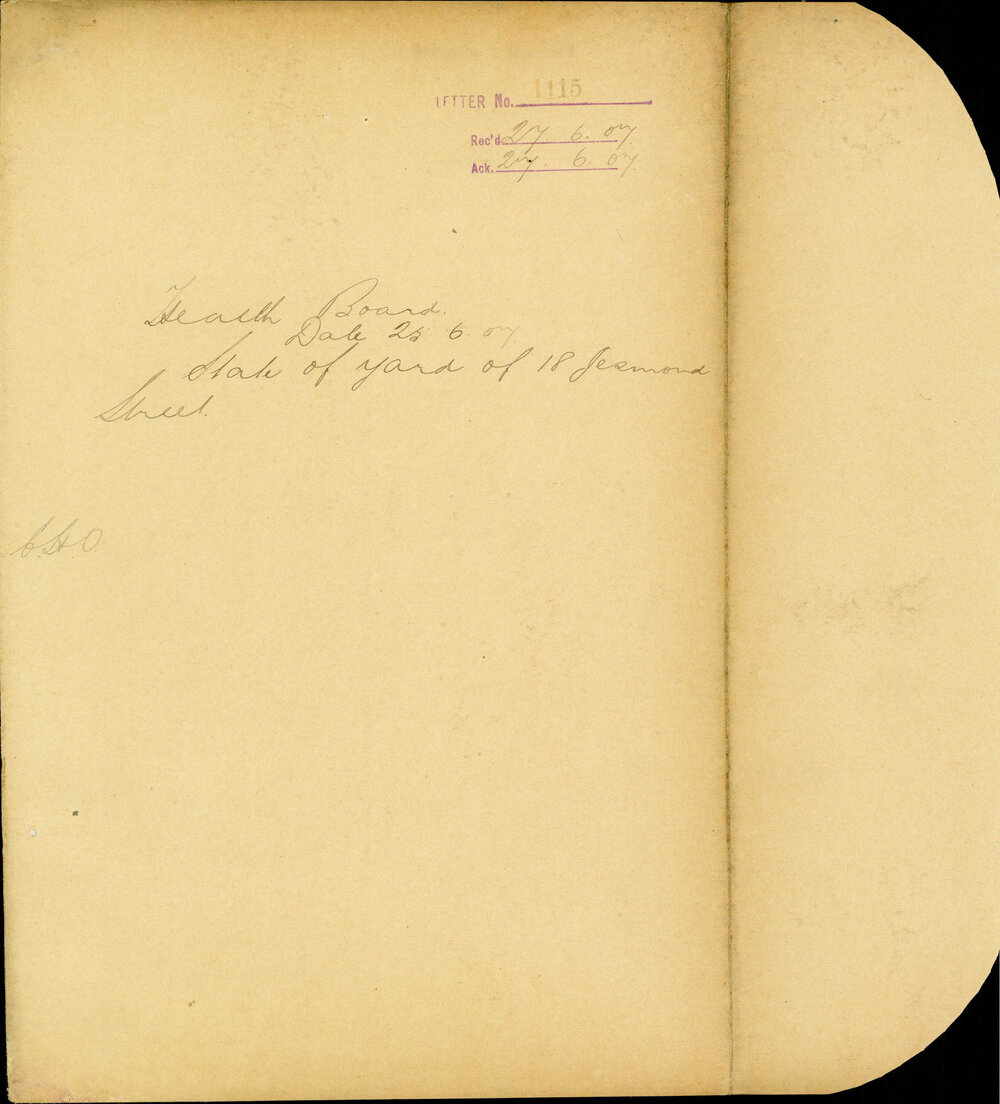 LETTER No. 1115
Rec'd 27. 6. 07.
Ack. 27. 6. 07.
Health Board.
Date 25 6. 07.
State of yard of 18 Jesmond
Street.
C.H.O.